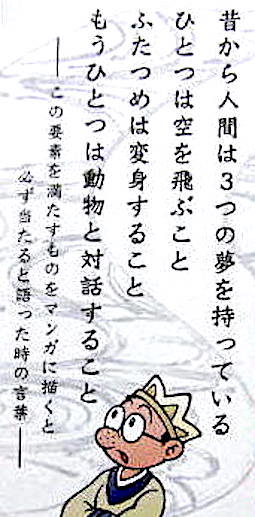 昔から人間は３つの夢を持っている
ひとつは空を飛ぶこと
ふたつめは変身すること
もうひとつは動物と対話すること
――この要素を満たすものをマンガに描くと
必ず当たると語った時の言葉――